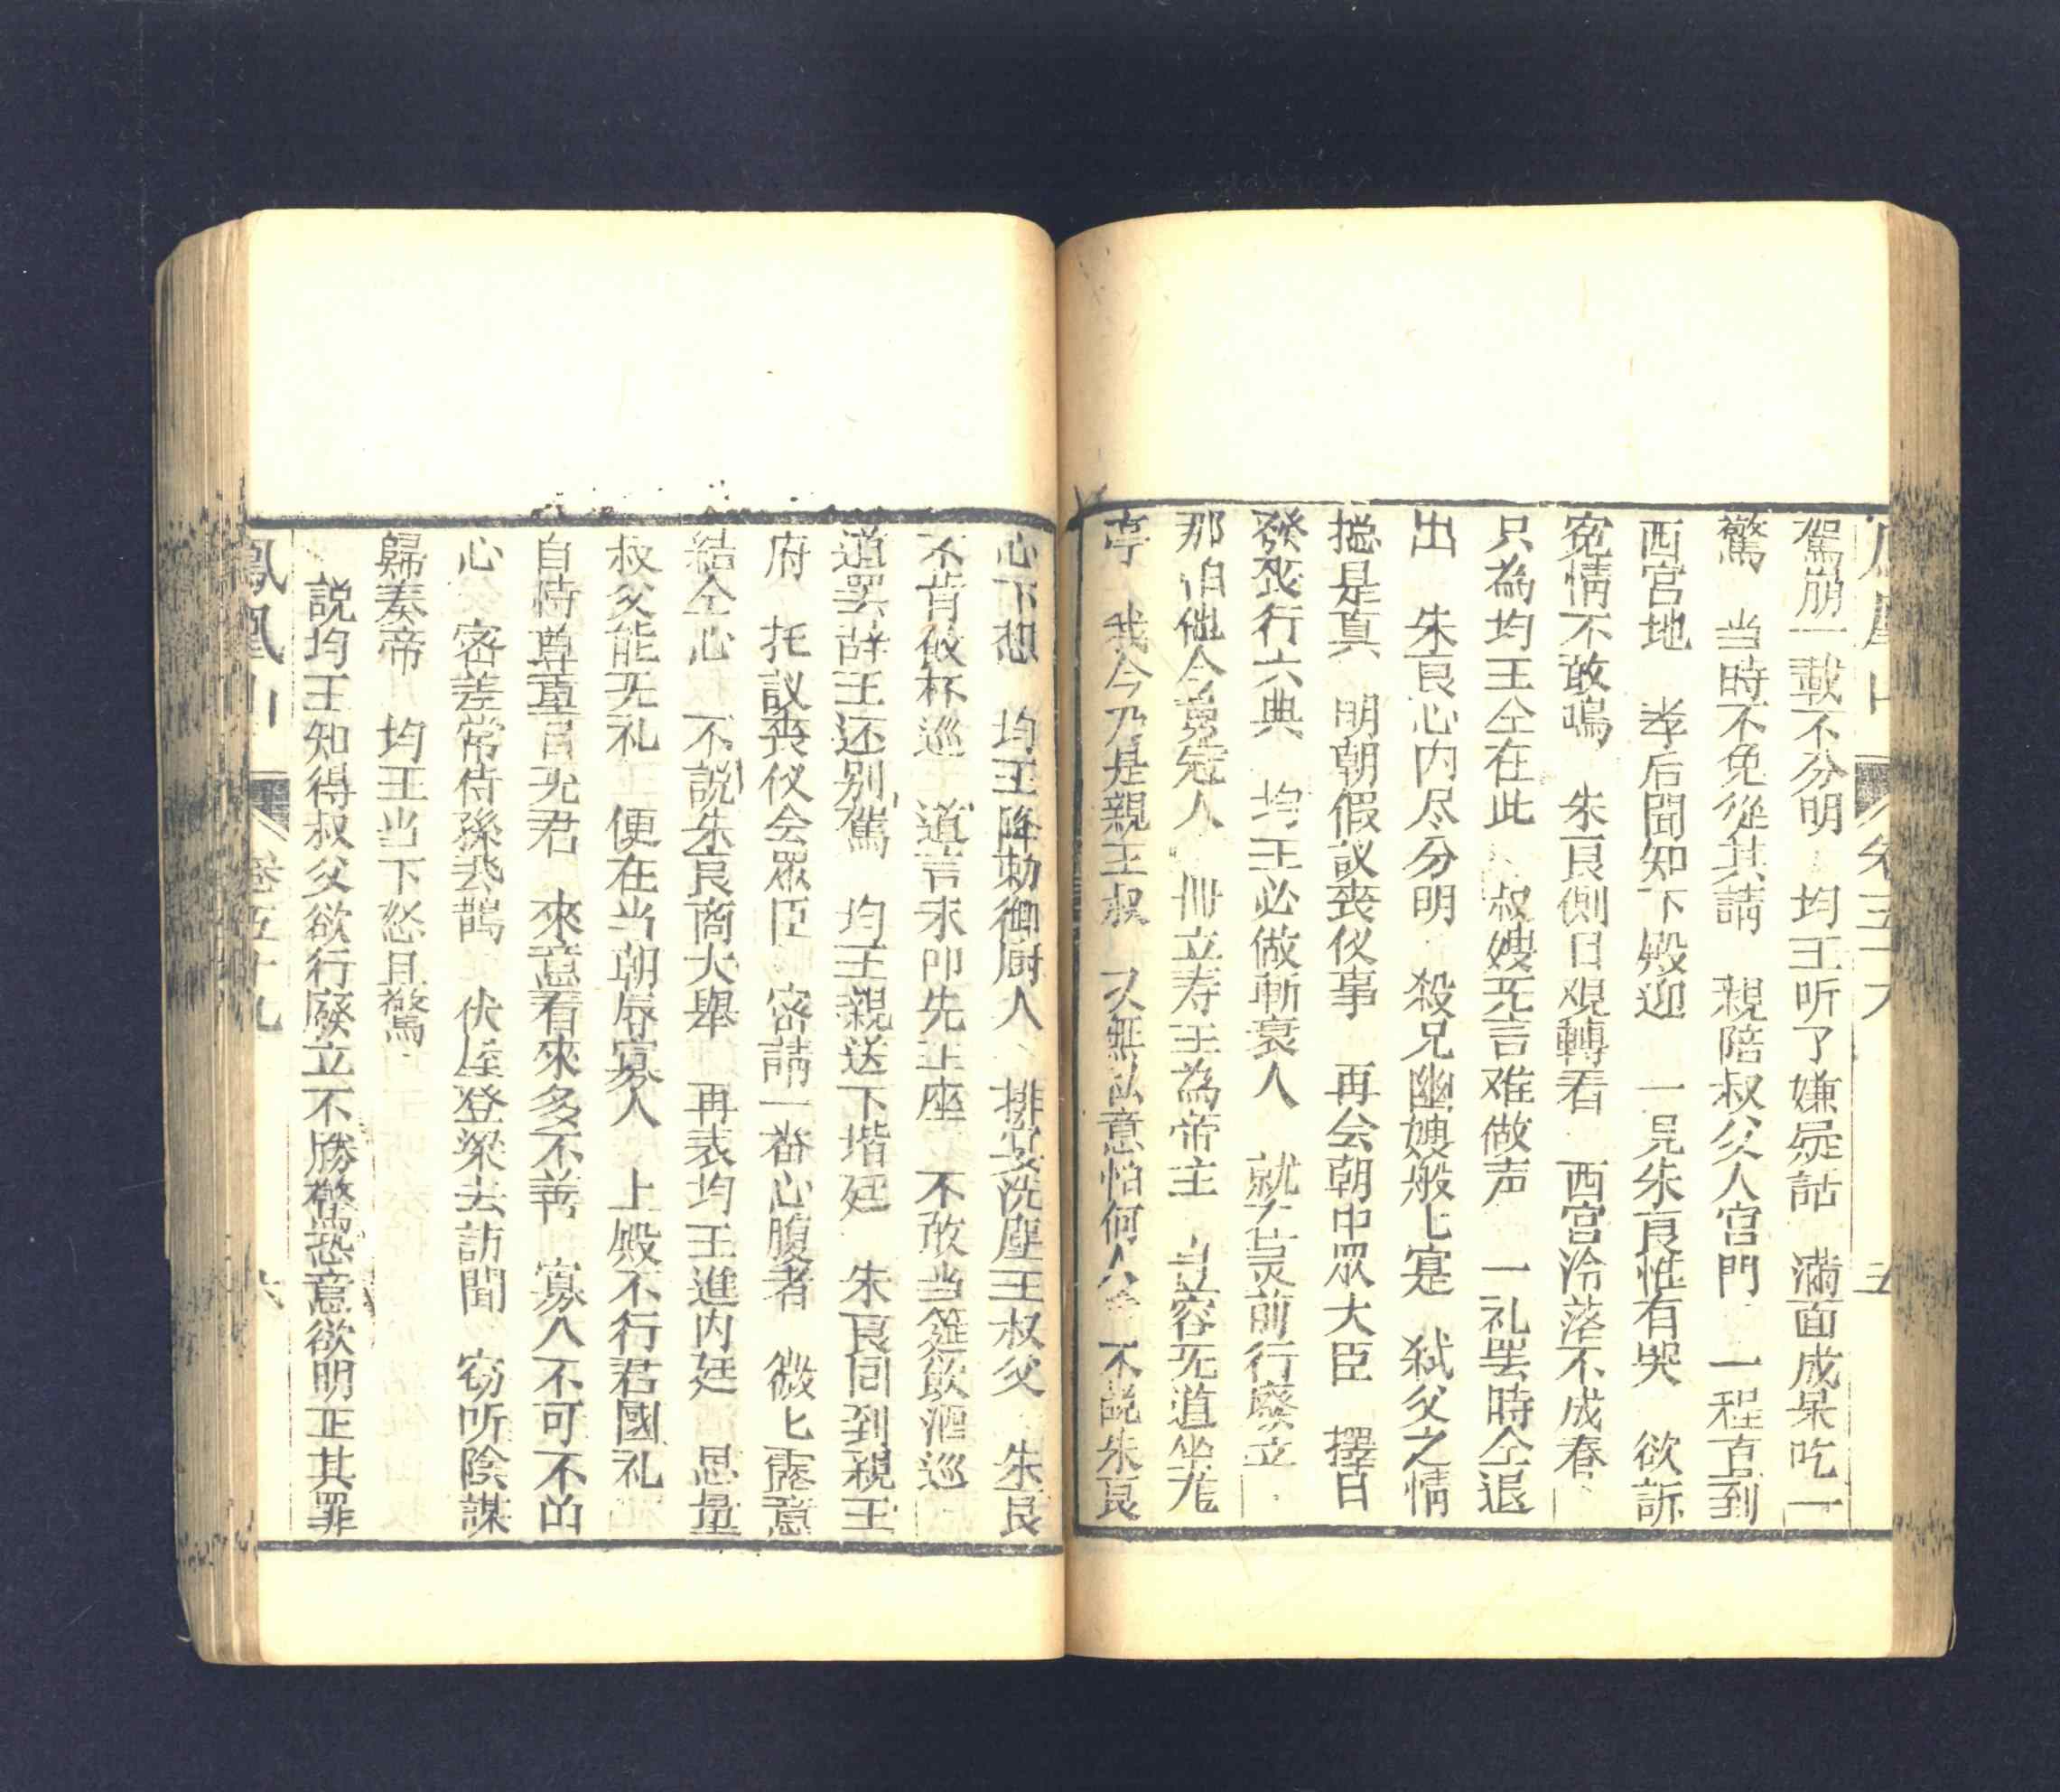 駕崩一載不分明 均王听了嫌疑話 滿面成呆吃一
驚 当時不免從其請 親陪叔父入宫門 一程直到
西宫地 孝后聞知下殿迎 一見朱良惟有哭 欲訴
寃情不敢鳴 朱良側目观轉看 西宫泠落不成春
只為均王仝在此 叔嫂旡言难做声 一礼罢時仝退
出 朱良心内尽分明 殺兄幽嫂般匕寔 弑父之情
摠是真 明朝假議喪仪事 再会朝中眾大臣 擇日
發丧行六典 均王必做斬衰人 就在灵前行廢立
那怕他今勇冠人 冊立寿王為帝主 豈容旡道坐龙
亭 我今乃是親王叔 又無私意怕何人 不説朱良
心下想 均王降勅御厨人 排宴洗塵王叔父 朱良
不肯攸杯巡 道言未卽先上座 不敢当筵飲酒巡
道罢辞王还别駕 均王親送下堦廷 朱良回到親王
府 托議喪仪会眾臣 密請一畨心腹者 微匕露意
結仝心 不説朱良商大舉 再表均王進内廷 思量
叔父能旡礼 便在当朝辱寡人 上殿不行君國礼
自恃尊章目旡君 來意看來多不善 寡人不可不的
心 密差常侍孫飛鵲 伏屋登梁去訪聞 窃听陰謀
歸奏帝 均王当下怒且驚
説均王知得叔父欲行廢立不勝驚恐意欲明正其罪
鳳凰山 卷五十九 六